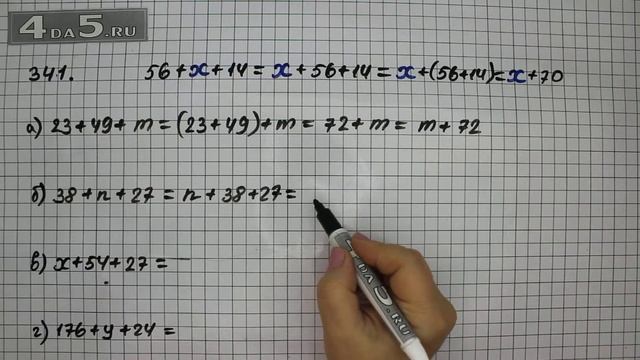 4DA5.RU
341. 56 + x + 14 = x + 56 + 14 = x + (56 + 14) = x + 70
а) 23 + 49 + m = (23 + 49) + m = 72 + m = m + 72
б) 38 + n + 27 = n + 38 + 27 =
в) x + 54 + 27 =
г) 176 + y + 24 =
4DA5.RU